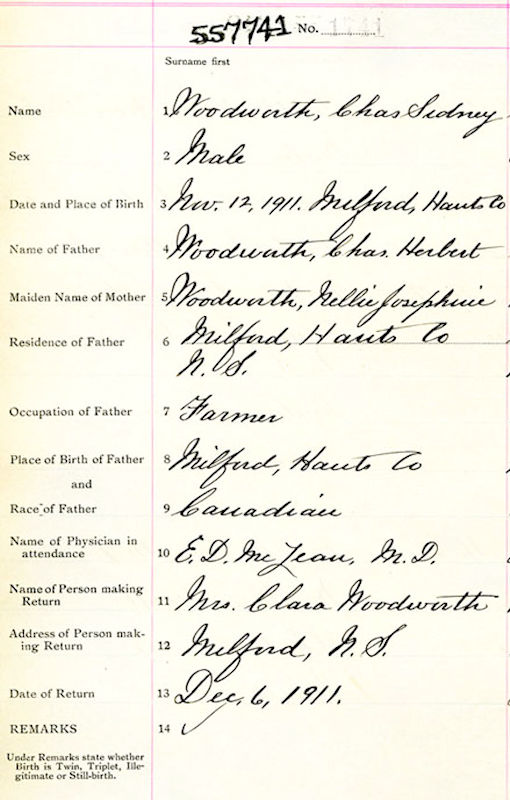 557741 No. 1741
Surname first
Name 1 Woodworth, Chas Sidney
Sex 2 Male
Date and Place of Birth 3 Nov. 12, 1911. Milford, Hants Co
Name of Father 4 Woodworth, Chas. Herbert
Maiden Name of Mother 5 Woodworth, Nellie Josephine
Residence of Father 6 Milford, Hants Co
N. S.
Occupation of Father 7 Farmer
Place of Birth of Father 8 Milford, Hants Co
and
Race of Father 9 Canadian
Name of Physician in
attendance 10 E. D. McLean, M.D.
Name of Person making
Return 11 Mrs. Clara Woodworth
Address of Person mak-
ing Return 12 Milford, N. S.
Date of Return 13 Dec. 6, 1911.
REMARKS 14
Under Remarks state whether
Birth is Twin, Triplet, Ille-
gitimate or Still-birth.